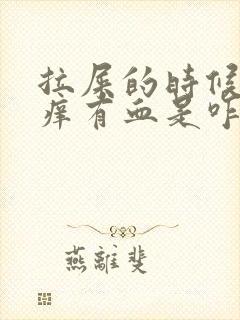 拉屎的时候
痒有血是咋
燕離斐